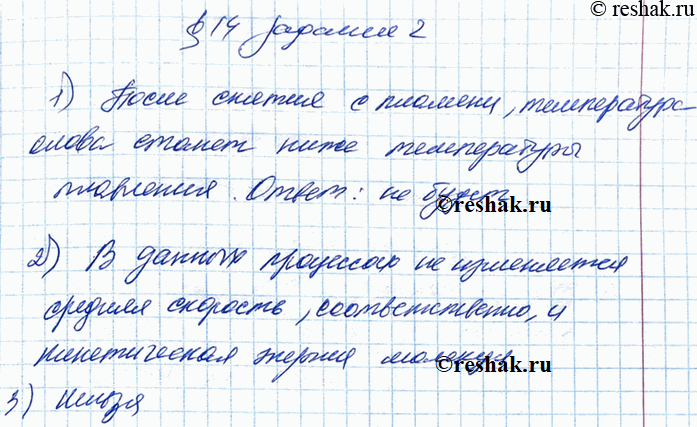 © reshak.ru
§ 14 задания 2
1) После снятия с пламени, температура
олова станет ниже температуры
плавления. Ответ: не будет
©reshak.ru
2) В данных процессах не изменяется
средняя скорость, соответственно, и
кинетическая энергия молекул
©reshak.ru
3) Нельзя